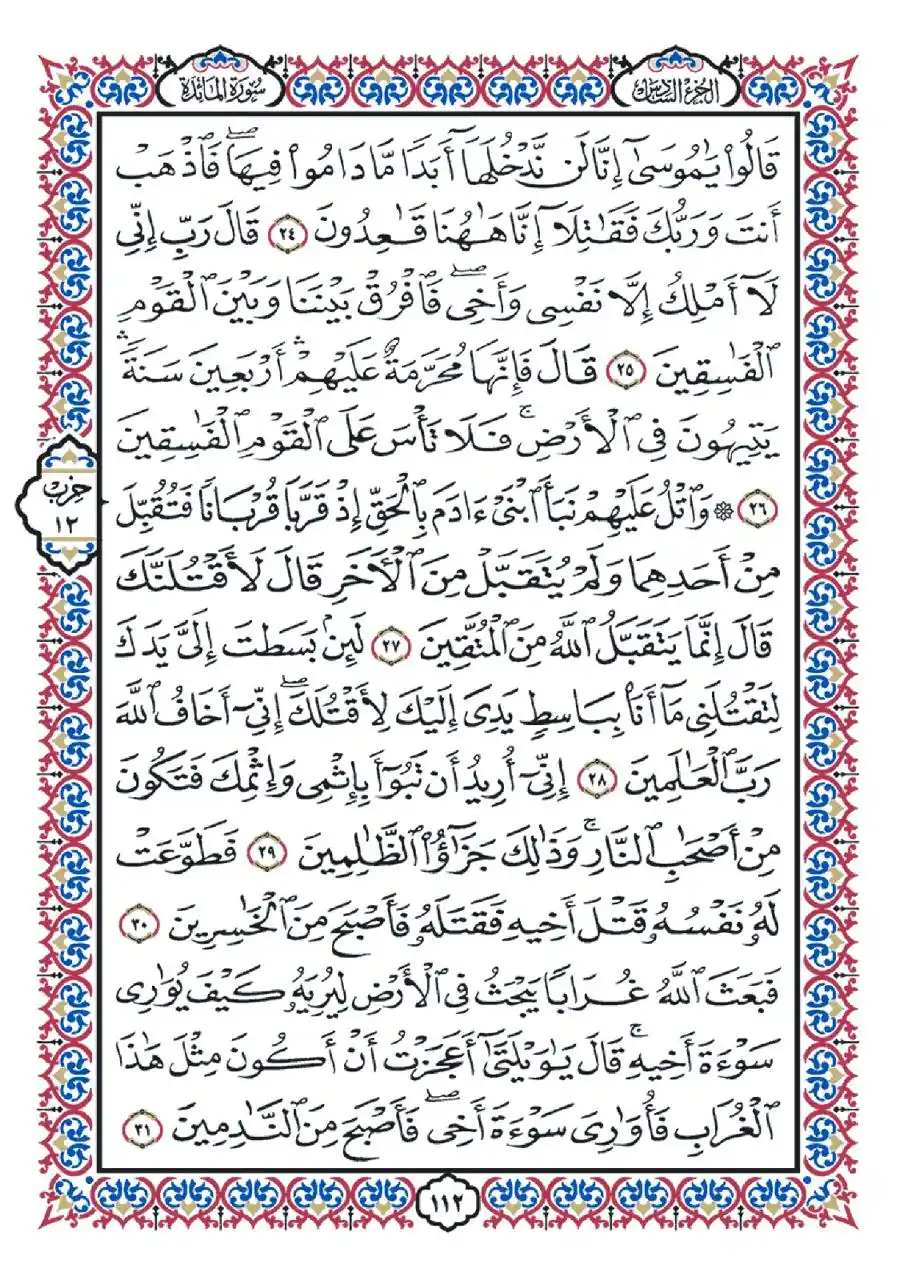 الجزء السادس
سورة المائدة
قَالُوا۟ يَـٰمُوسَىٰٓ إِنَّا لَن نَّدْخُلَهَآ أَبَدًا مَّا دَامُوا۟ فِيهَا ۖ فَٱذْهَبْ
أَنتَ وَرَبُّكَ فَقَـٰتِلَآ إِنَّا هَـٰهُنَا قَـٰعِدُونَ ٢٤ قَالَ رَبِّ إِنِّى
لَآ أَمْلِكُ إِلَّا نَفْسِى وَأَخِى ۖ فَٱفْرُقْ بَيْنَنَا وَبَيْنَ ٱلْقَوْمِ
ٱلْفَـٰسِقِينَ ٢٥ قَالَ فَإِنَّهَا مُحَرَّمَةٌ عَلَيْهِمْ ۛ أَرْبَعِينَ سَنَةً ۛ
يَتِيهُونَ فِى ٱلْأَرْضِ ۚ فَلَا تَأْسَ عَلَى ٱلْقَوْمِ ٱلْفَـٰسِقِينَ
٢٦ ۞ وَٱتْلُ عَلَيْهِمْ نَبَأَ ٱبْنَىْ ءَادَمَ بِٱلْحَقِّ إِذْ قَرَّبَا قُرْبَانًا فَتُقُبِّلَ
حزب
١٢
مِنْ أَحَدِهِمَا وَلَمْ يُتَقَبَّلْ مِنَ ٱلْـَٔاخَرِ قَالَ لَأَقْتُلَنَّكَ
قَالَ إِنَّمَا يَتَقَبَّلُ ٱللَّهُ مِنَ ٱلْمُتَّقِينَ ٢٧ لَئِنۢ بَسَطتَ إِلَىَّ يَدَكَ
لِتَقْتُلَنِى مَآ أَنَا۠ بِبَاسِطٍ يَدِىَ إِلَيْكَ لِأَقْتُلَكَ ۖ إِنِّىٓ أَخَافُ ٱللَّهَ
رَبَّ ٱلْعَـٰلَمِينَ ٢٨ إِنِّىٓ أُرِيدُ أَن تَبُوٓأَ بِإِثْمِى وَإِثْمِكَ فَتَكُونَ
مِنْ أَصْحَـٰبِ ٱلنَّارِ ۚ وَذَٰلِكَ جَزَٰٓؤُا۟ ٱلظَّـٰلِمِينَ ٢٩ فَطَوَّعَتْ
لَهُۥ نَفْسُهُۥ قَتْلَ أَخِيهِ فَقَتَلَهُۥ فَأَصْبَحَ مِنَ ٱلْخَـٰسِرِينَ ٣٠
فَبَعَثَ ٱللَّهُ غُرَابًا يَبْحَثُ فِى ٱلْأَرْضِ لِيُرِيَهُۥ كَيْفَ يُوَٰرِى
سَوْءَةَ أَخِيهِ ۚ قَالَ يَـٰوَيْلَتَىٰٓ أَعَجَزْتُ أَنْ أَكُونَ مِثْلَ هَـٰذَا
ٱلْغُرَابِ فَأُوَٰرِىَ سَوْءَةَ أَخِى ۖ فَأَصْبَحَ مِنَ ٱلنَّـٰدِمِينَ ٣١
١١٢